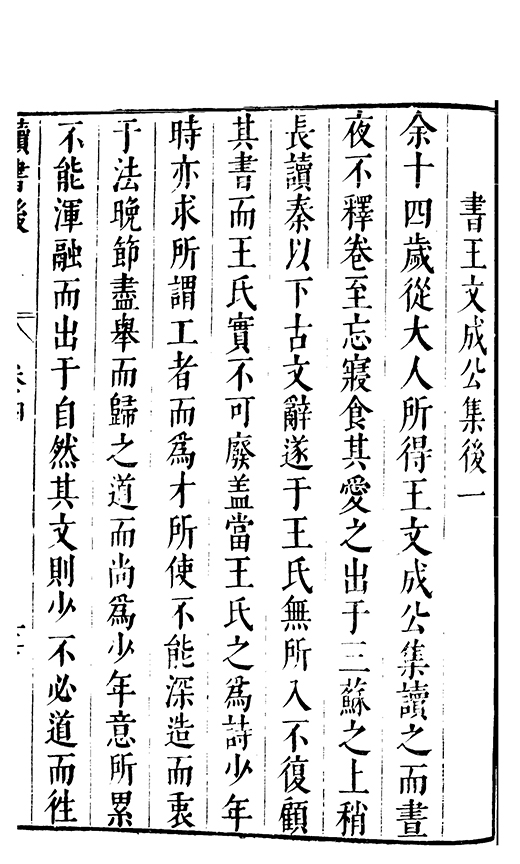 書王文成公集後一
余十四歲從大人所得王文成公集讀之而晝
夜不釋卷至忘寢食其愛之出于三蘇之上稍
長讀秦以下古文辭遂于王氏無所入不復顧
其書而王氏實不可廢盖當王氏之為詩少年
時亦求所謂工者而為才所使不能深造而衷
于法晚節盡舉而歸之道而尚為少年意所累
不能渾融而出于自然其文則少不必道而徃
讀書後
卷四